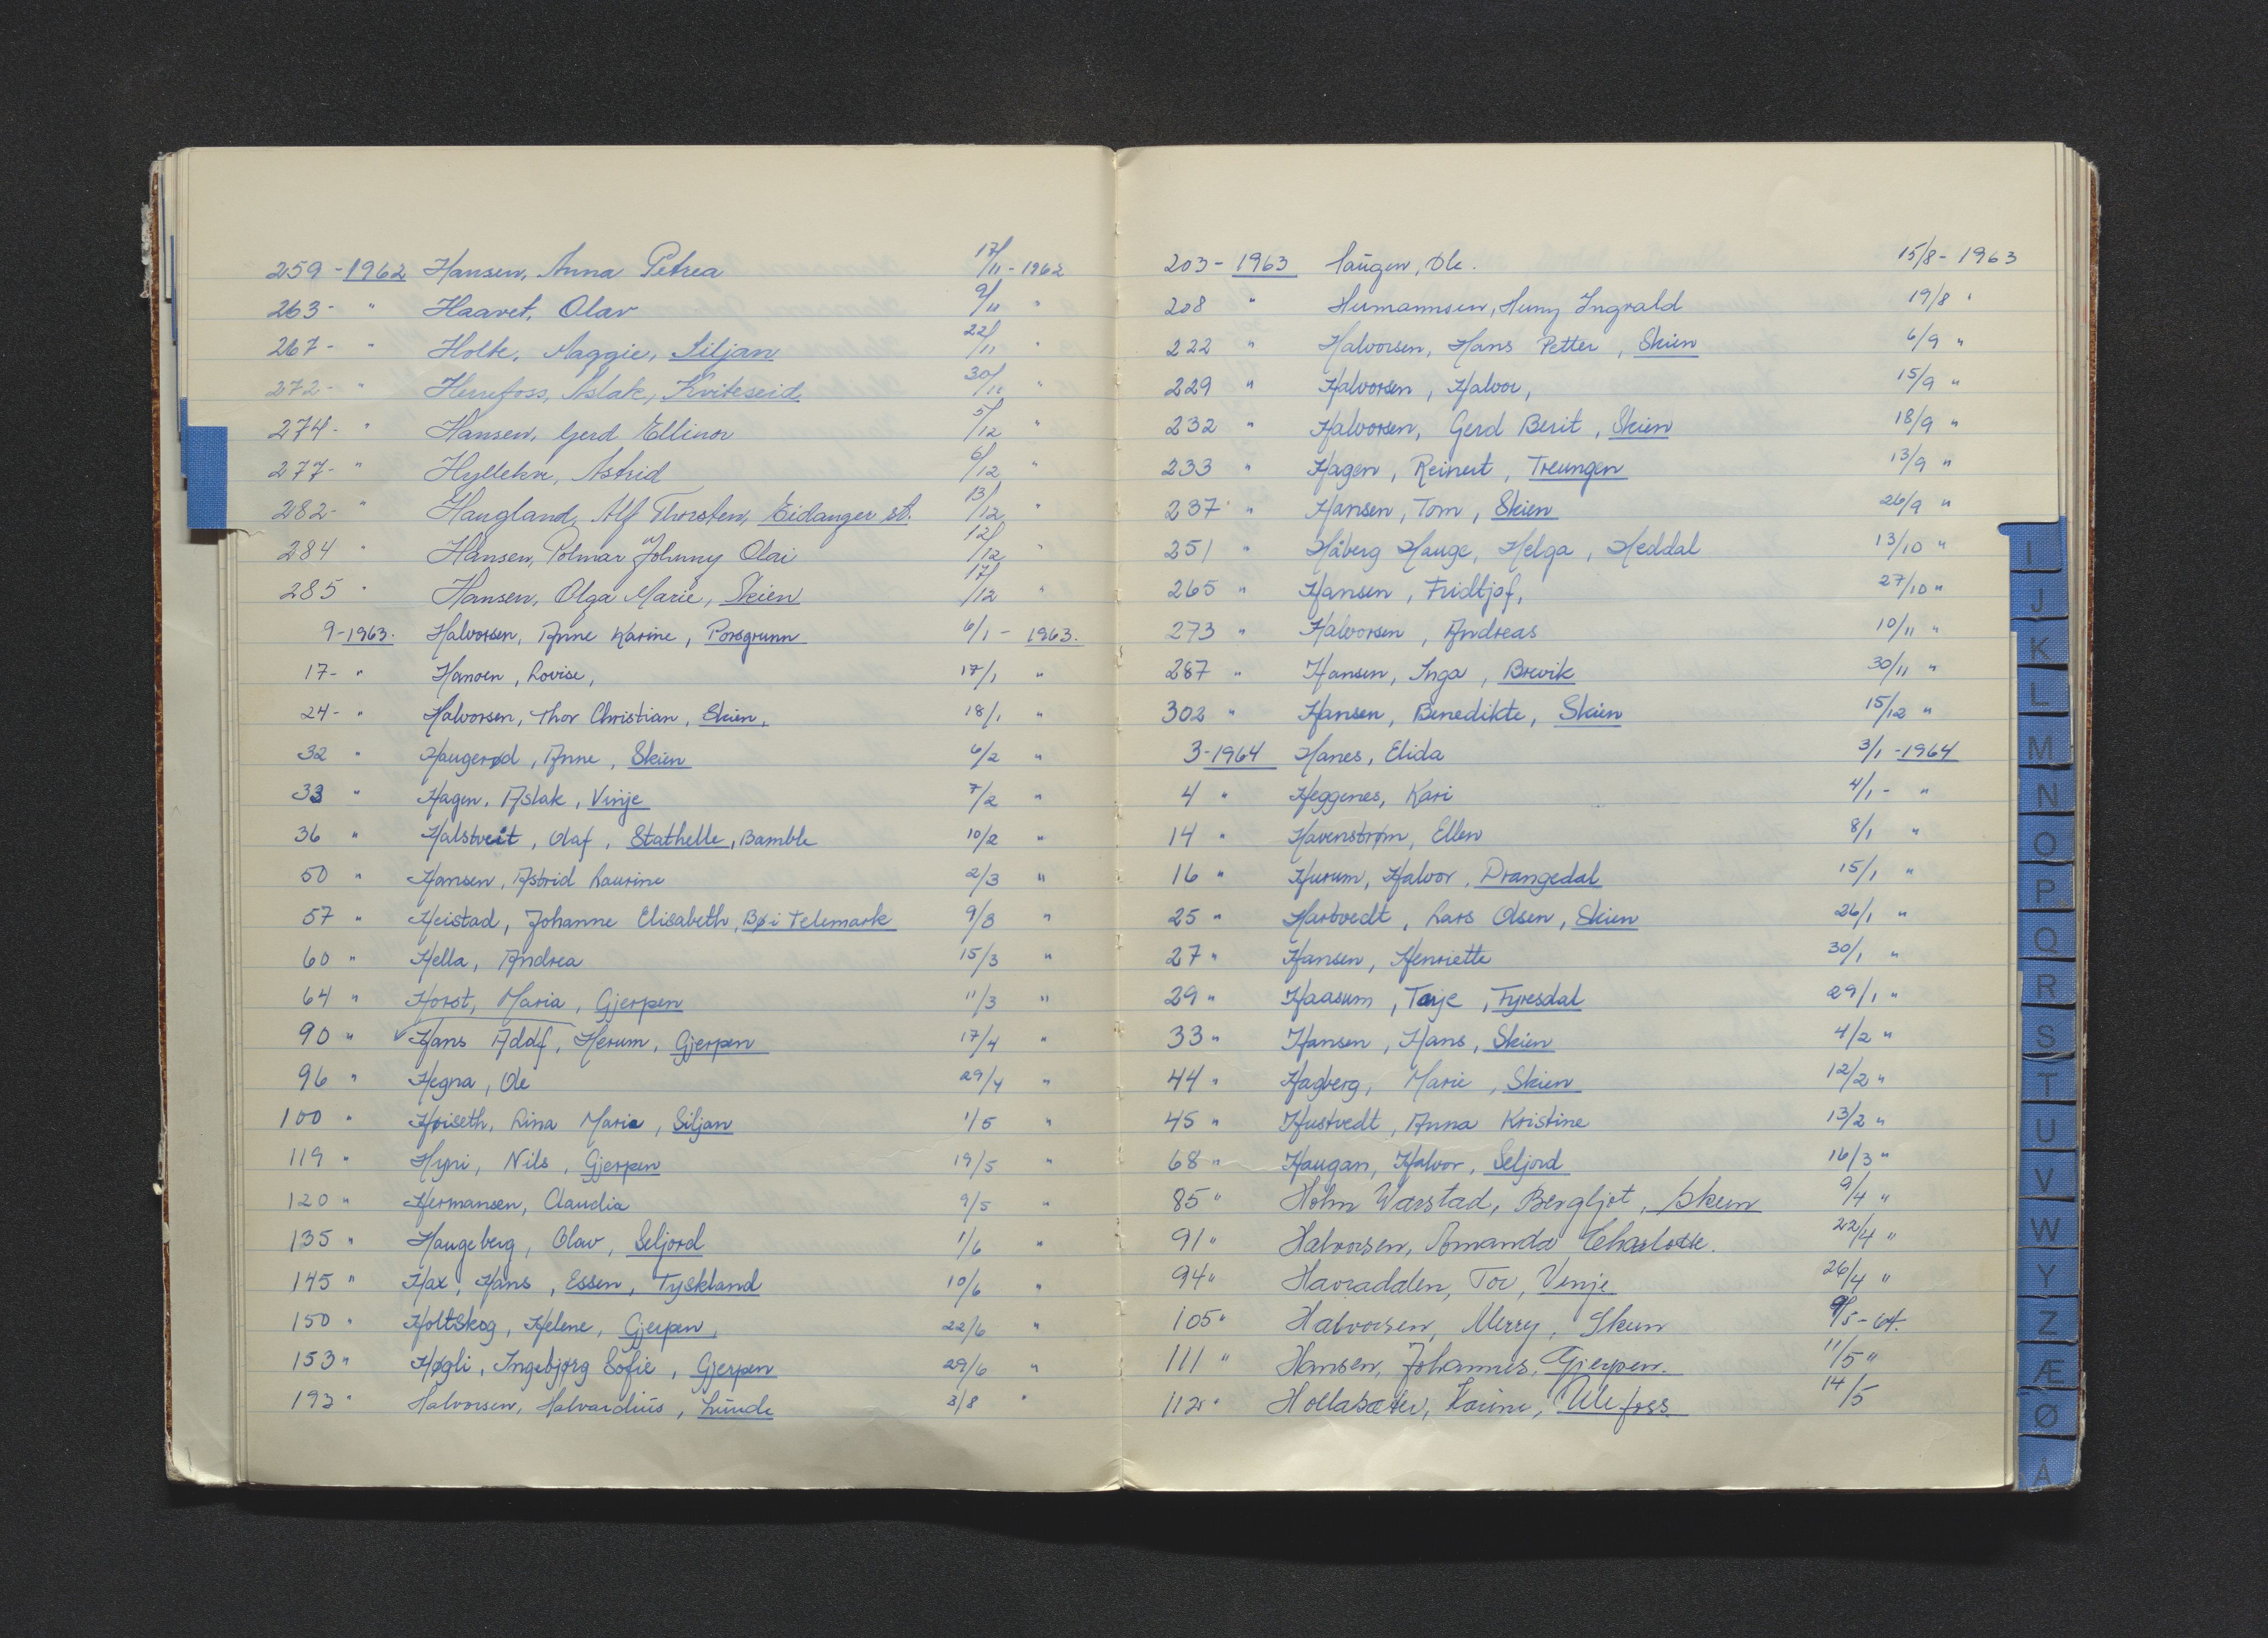 259 - 1962 Hansen, Anna Petrea 17/11 - 1962
263 - " Haavet, Olav 9/11 "
267 - " Holte, Maggie, Siljan 22/11 "
272 - " Herrefoss, Aslak, Kviteseid 30/11 "
274 - " Hansen, Gerd Ellinor 5/12 "
277 - " Hyllekve, Astrid 6/12 "
282 - " Haugland, Alf Thorsten, Eidanger st. 13/12 "
284 " Hansen, Polmar Johnny Olai 12/12 "
285 " Hansen, Olga Marie, Skien 17/12 "
9 - 1963. Halvorsen, Anne Karine, Porsgrunn 6/1 - 1963.
17 - " Hansen, Lovise, 17/1 "
24 - " Halvorsen, Thor Christian, Skien, 18/1 "
32 " Haugerød, Anne, Skien 6/2 "
33 " Hagen, Aslak, Vinje 7/2 "
36 " Halstveit, Olaf, Stathelle, Bamble 10/2 "
50 " Hansen, Astrid Laurine 2/3 "
57 " Heistad, Johanne Elisabeth, Bø i Telemark 9/3 "
60 " Hella, Andrea 15/3 "
64 " Horst, Maria, Gjerpen 11/3 "
90 " Hans Adolf, Herum, Gjerpen 17/4 "
96 " Hegna, Ole 29/4 "
100 " Høiseth, Lina Marie, Siljan 1/5 "
119 " Hyni, Nils, Gjerpen 19/5 "
120 " Hermansen, Claudia 9/5 "
135 " Haugeberg, Olav, Seljord 1/6 "
145 " Hax, Hans, Essen, Tyskland 10/6 "
150 " Holtskog, Helene, Gjerpen, 22/6 "
153 " Høgli, Ingebjørg Sofie, Gjerpen 29/6 "
193 " Halvorsen, Halvardius, Lunde 3/8 "
203 - 1963 Haugen, Ole. 15/8 - 1963
208 " Hermannsen, Henry Ingvald 19/8 "
222 " Halvorsen, Hans Petter, Skien 6/9 "
229 " Halvorsen, Halvor, 15/9 "
232 " Halvorsen, Gerd Berit, Skien 18/9 "
233 " Hagen, Reinert, Treungen 13/9 "
237 " Hansen, Tom, Skien 26/9 "
251 " Håberg Hauge, Helga, Heddal 13/10 "
265 " Hansen, Fridtjof, 27/10 "
273 " Halvorsen, Andreas 10/11 "
287 " Hansen, Inga, Brevik 30/11 "
302 " Hansen, Benedikte, Skien 15/12 "
3 - 1964 Hanes, Elida 3/1 - 1964
4 " Heggenes, Kari 4/1 - "
14 " Havenstrøm, Ellen 8/1 "
16 " Hurum, Halvor, Drangedal 15/1 "
25 " Hartvedt, Lars Olsen, Skien 26/1 "
27 " Hansen, Henriette 30/1 "
29 " Haasum, Tarje, Fyresdal 29/1 "
33 " Hansen, Hans, Skien 4/2 "
44 " Hagberg, Marie, Skien 12/2 "
45 " Hustvedt, Anna Kristine 13/2 "
68 " Haugan, Halvor, Seljord 16/3 "
85 " Holm Warstad, Bergljot, Skien 9/4 "
91 " Halvorsen, Amanda Charlotte. 22/4 "
94 " Havradalen, Tor, Vinje 26/4 "
105 " Halvorsen, Merry, Skien 9/5 - 64.
111 " Hansen, Johannes, Gjerpen. 11/5 "
112 " Hollasæter, Karine, Ulefoss 14/5
I
J
K
L
M
N
O
P
Q
R
S
T
U
V
W
Y
Z
Æ
Ø
Å